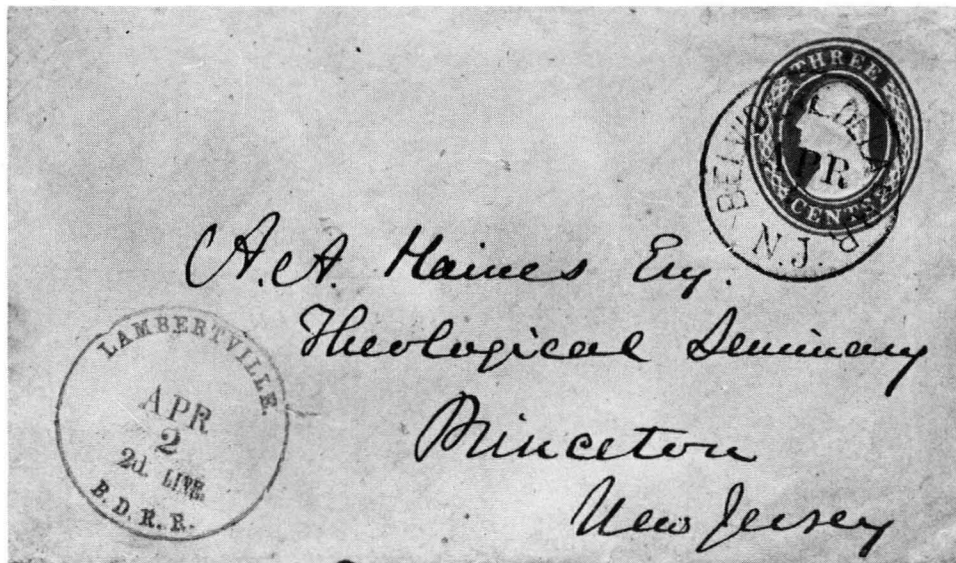 THREE
CENTS
BELVID & DELA R.R.
PR
N.J.
A. A. Haines Esq.
Theological Seminary
Princeton
New Jersey
LAMBERTVILLE.
APR
2
2d. LINE.
B. D. R. R.